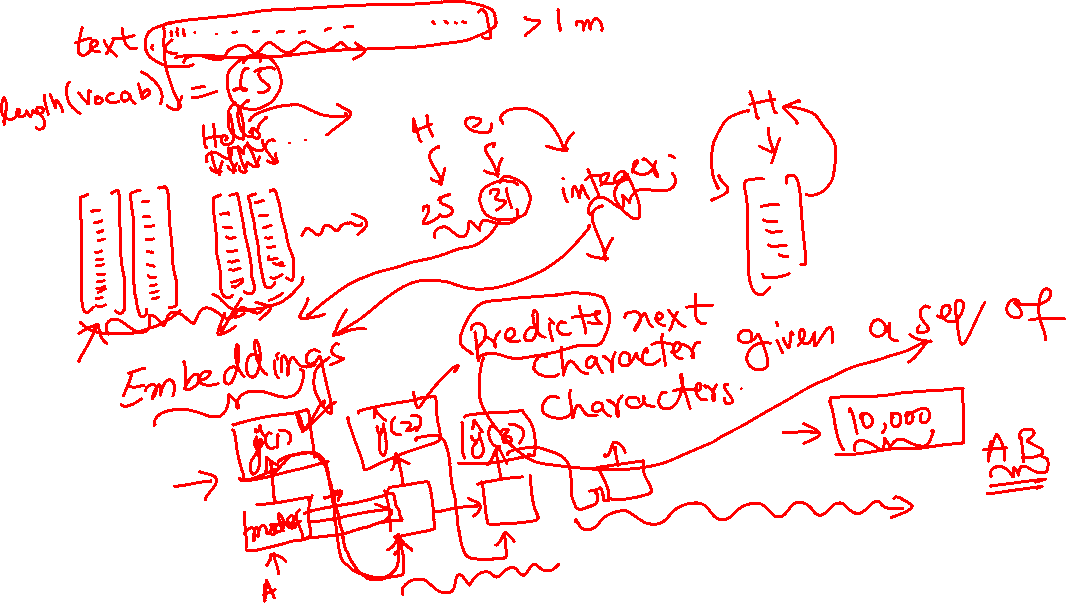 text > 1 m
length(vocab) = 65
Hello ...
H e
25 31 integer
H
Embeddings
predicts next
character given a seq of
characters.
ŷ(1) ŷ(2) ŷ(3)
10,000
AB
model
A